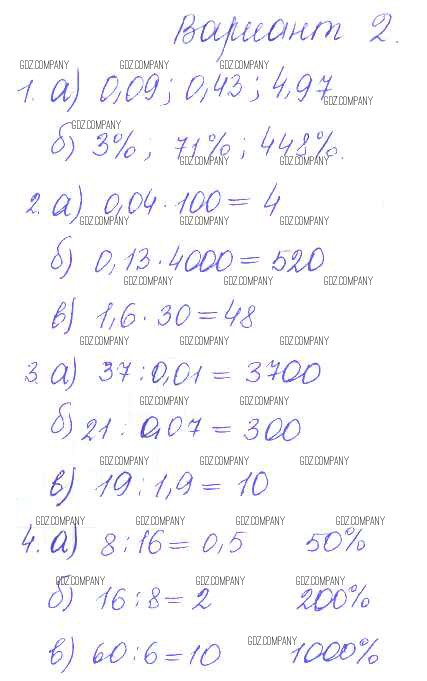 Вариант 2.
GDZ.COMPANY GDZ.COMPANY GDZ.COMPANY
1. а) 0,09; 0,43; 4,97
GDZ.COMPANY
GDZ.COMPANY
б) 3%; 71%; 448%.
GDZ.COMPANY GDZ.COMPANY
2. а) 0,04 · 100 = 4
GDZ.COMPANY GDZ.COMPANY GDZ.COMPANY
б) 0,13 · 4000 = 520
GDZ.COMPANY GDZ.COMPANY GDZ.COMPANY
в) 1,6 · 30 = 48
GDZ.COMPANY GDZ.COMPANY GDZ.COMPANY
3. а) 37 : 0,01 = 3700
GDZ.COMPANY GDZ.COMPANY
б) 21 : 0,07 = 300
GDZ.COMPANY GDZ.COMPANY GDZ.COMPANY
в) 19 : 1,9 = 10
GDZ.COMPANY GDZ.COMPANY GDZ.COMPANY GDZ.COMPANY
4. а) 8 : 16 = 0,5 50%
GDZ.COMPANY GDZ.COMPANY GDZ.COMPANY
б) 16 : 8 = 2 200%
GDZ.COMPANY
в) 60 : 6 = 10 1000%